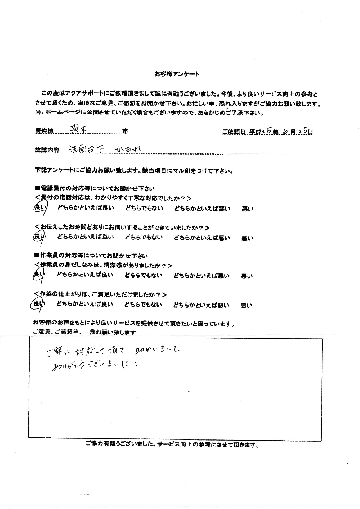 お客様アンケート
この度はアクアサポートにご依頼頂きまして誠に有難うございました。今後、より良いサービス向上の参考と
させて頂くため、率直なご意見、ご感想をお聞かせ下さい。お忙しい中、恐れ入りますがご協力お願い致します。
尚、ホームページに公開させていただく場合もございますので、あらかじめご了承下さい。
市
ご依頼日 平成
依頼内容
下記アンケートにご協力お願い致します。該当項目にマル印をつけて下さい。
■電話受付の対応等についてお聞かせ下さい
<受付の電話対応は、わかりやすく丁寧な対応でしたか?>
良い どちらかといえば良い どちらでもない どちらかといえば悪い 悪い
<お伝えしたお時間どおりにお伺いすることができていましたか?>
良い どちらかといえば良い どちらでもない どちらかといえば悪い 悪い
■作業員の対応等についてお聞かせ下さい
<作業員の身だしなみは、清潔感がありましたか?>
良い どちらかといえば良い どちらでもない どちらかといえば悪い 悪い
<作業の仕上がりは、ご満足いただけましたか?>
良い どちらかといえば良い どちらでもない どちらかといえば悪い 悪い
お客様のお声をもとにより良いサービスを提供させて頂きたいと思っています。
ご意見、ご感想等、お願い致します
ありがとうございました
ご協力有難うございました。サービス向上の参考にさせて頂きます。